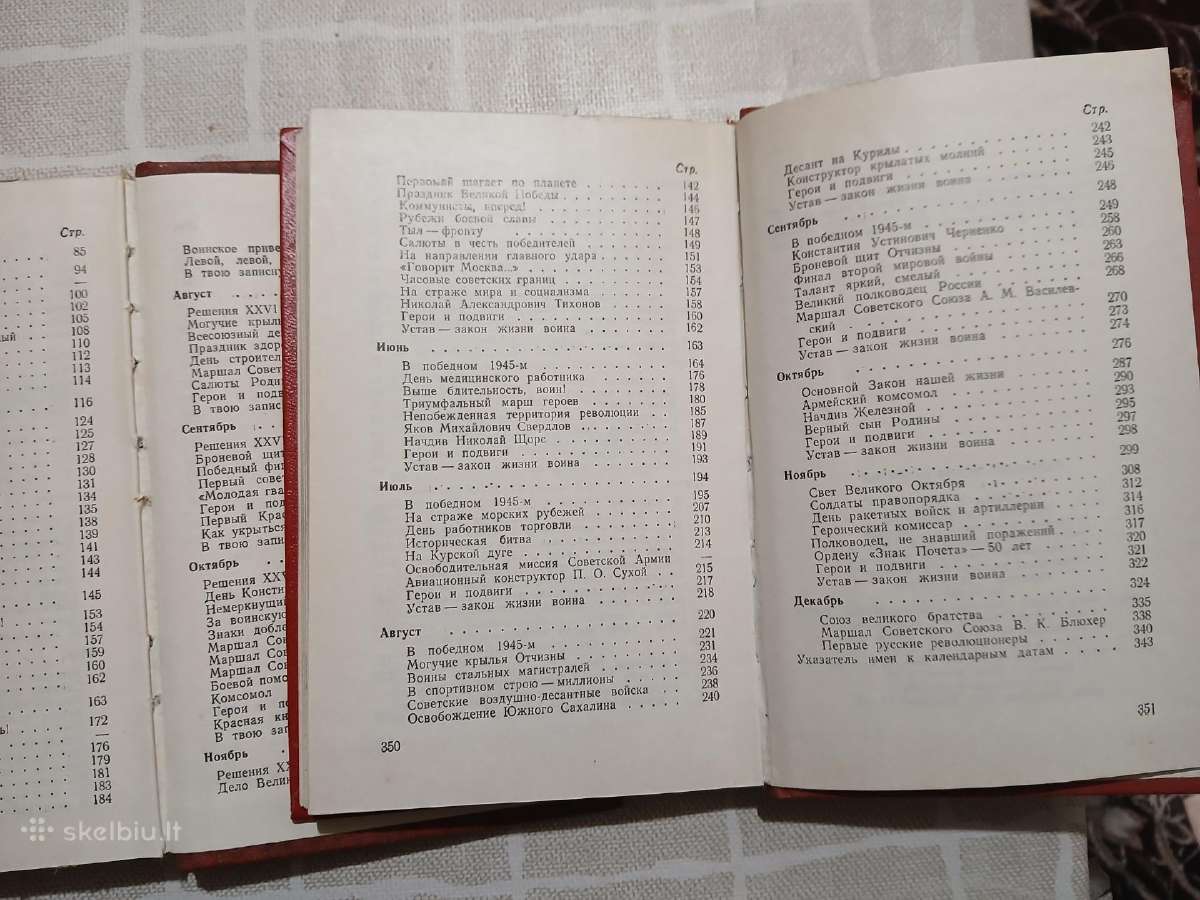 Стр.
85
94
—
100
102
105
ный 108
110
112
113
114
116
124
125
127
128
130
131
134
135
138
139
141
143
144
145
153
154
157
159
160
162
163
172
ь! —
176
179
181
183
184
Воинское приве
Левой, левой,
В твою записну
Август
Решения XXVI
Могучие крыль
Всесоюзный де
Праздник здор
День строител
Маршал Совет
Салюты Роди
Герои и подв
В твою запис
Сентябрь
Решения XXV
Броневой щит
Победный фин
Первый совет
«Молодая гва
Герои и под
Первый Крас
Как укрыться
В твою запи
Октябрь
Решения XXV
День Консти
Немеркнущий
За воинскую
Знаки добле
Маршал Сов
Маршал Сов
Маршал Сов
Боевой помо
Комсомол
Герои и по
Красная кн
В твою заг
Ноябрь
Решения XX
Дело Велин
Стр.
Первомай шагает по планете 142
Праздник Великой Победы 144
Коммунисты, вперед! 146
Рубежи боевой славы 147
Тыл — фронту 148
Салюты в честь победителей 149
На направлении главного удара 151
«Говорит Москва...» 153
Часовые советских границ 154
На страже мира и социализма 157
Николай Александрович Тихонов 158
Герои и подвиги 160
Устав — закон жизни воина 162
Июнь 163
В победном 1945-м 164
День медицинского работника 176
Выше бдительность, воин! 178
Триумфальный марш героев 180
Непобежденная территория революции 185
Яков Михайлович Свердлов 187
Начдив Николай Щорс 189
Герои и подвиги 191
Устав — закон жизни воина 193
Июль 194
В победном 1945-м 195
На страже морских рубежей 207
День работников торговли 210
Историческая битва 213
На Курской дуге 214
Освободительная миссия Советской Армии —
Авиационный конструктор П. О. Сухой 215
Герои и подвиги 217
Устав — закон жизни воина 218
Август 220
В победном 1945-м 221
Могучие крылья Отчизны 231
Воины стальных магистралей 234
В спортивном строю — миллионы 236
Советские воздушно-десантные войска 238
Освобождение Южного Сахалина 240
350
Стр.
Десант на Курилы 242
Конструктор крылатых молний 243
Герои и подвиги 245
Устав — закон жизни воина 246
Сентябрь 248
В победном 1945-м 249
Константин Устинович Черненко 258
Броневой щит Отчизны 260
Финал второй мировой войны 263
Талант яркий, смелый 266
Великий полководец России 268
Маршал Советского Союза А. М. Василев-
ский 270
Герои и подвиги 273
Устав — закон жизни воина 274
Октябрь 276
Основной Закон нашей жизни 287
Армейский комсомол 290
Начдив Железной 293
Верный сын Родины 295
Герои и подвиги 297
Устав — закон жизни воина 298
Ноябрь 299
Свет Великого Октября 308
Солдаты правопорядка 312
День ракетных войск и артиллерии 314
Героический комиссар 316
Полководец, не знавший поражений 317
Ордену «Знак Почета» — 50 лет 320
Герои и подвиги 321
Устав — закон жизни воина 322
Декабрь 324
Союз великого братства 335
Маршал Советского Союза В. К. Блюхер 338
Первые русские революционеры 340
Указатель имен к календарным датам 343
351
skelbiu.lt